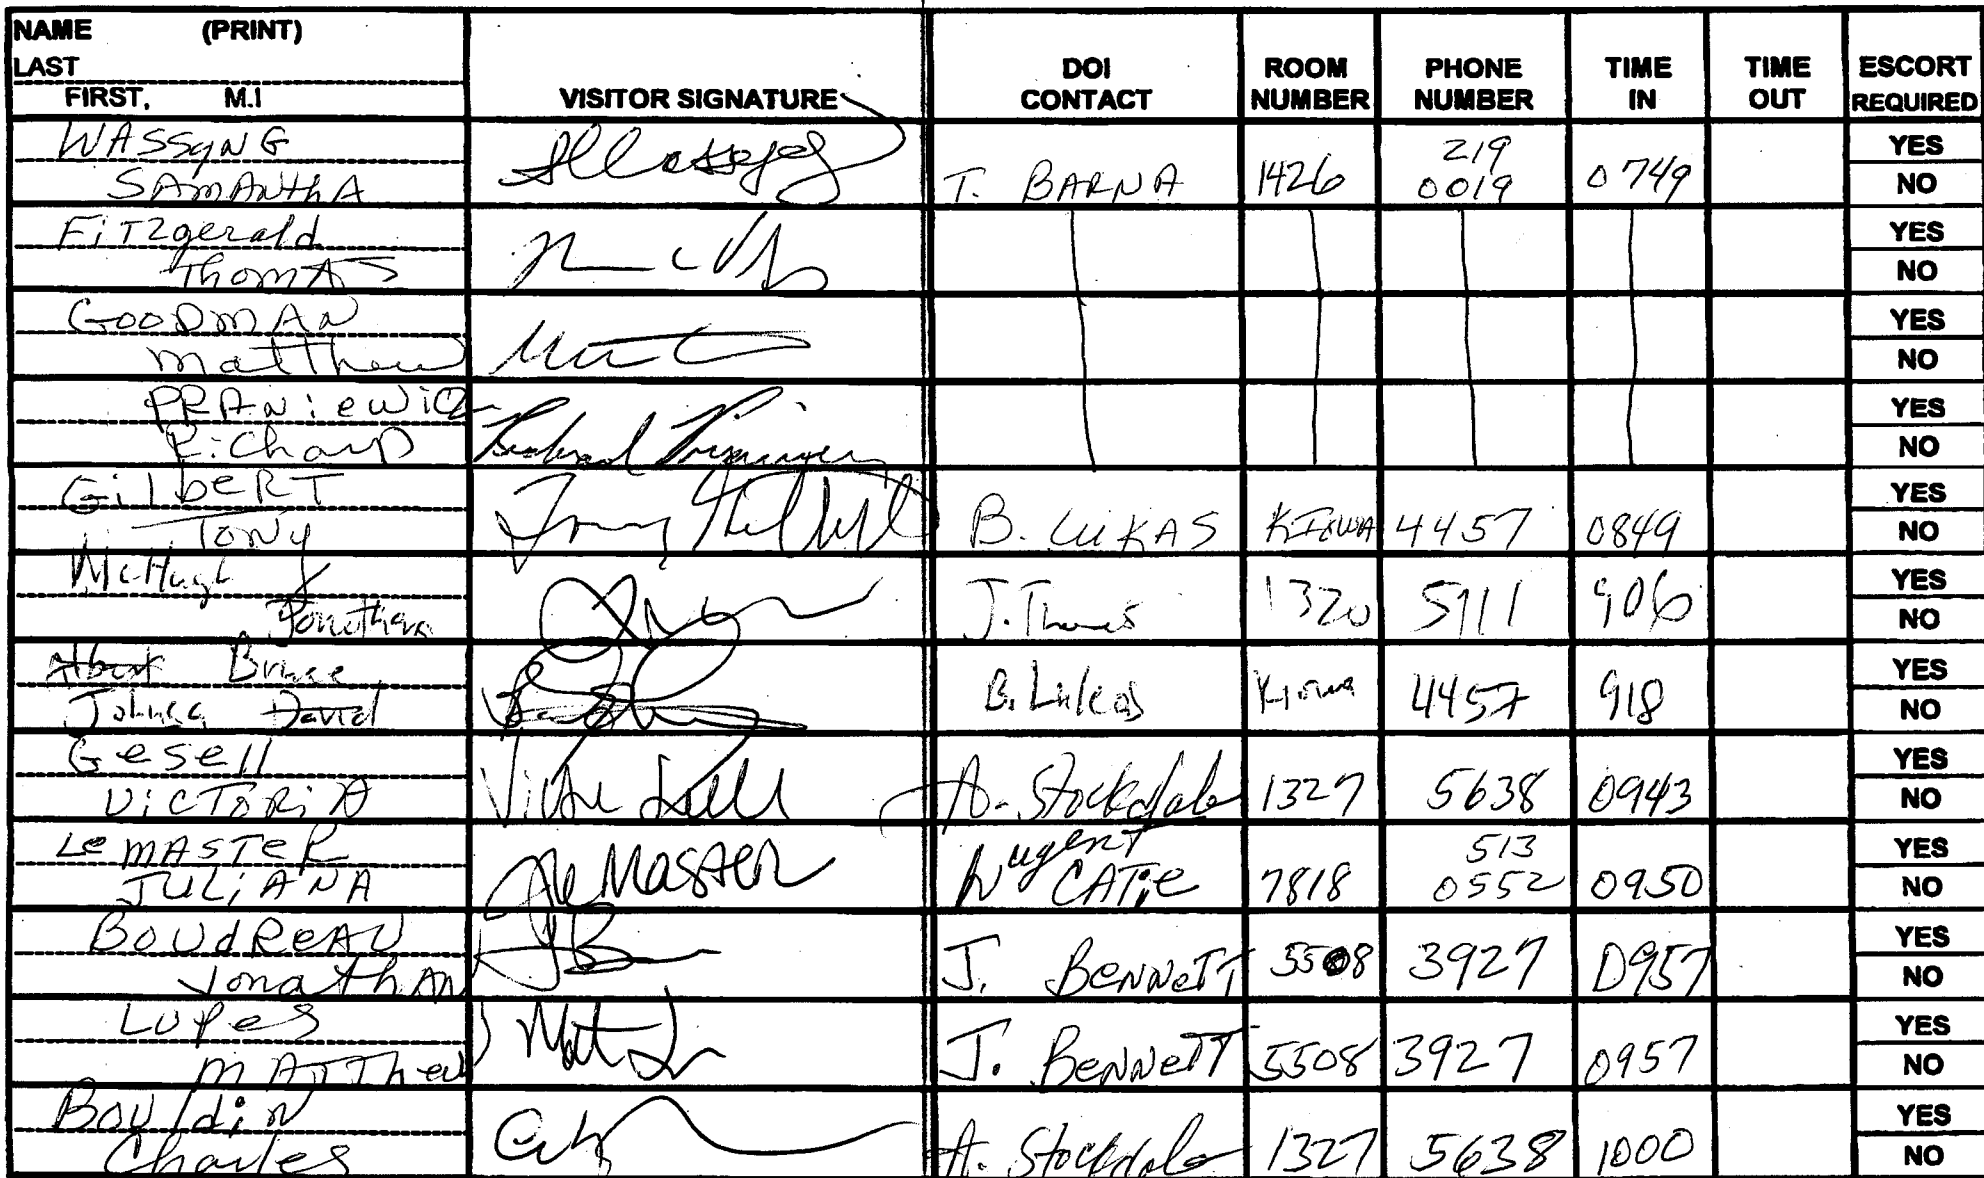 NAME (PRINT)
LAST
FIRST, M.I
VISITOR SIGNATURE
DOI CONTACT
ROOM NUMBER
PHONE NUMBER
TIME IN
TIME OUT
ESCORT REQUIRED
WASSYNG
SAMANThA
T. BARNA 1426 219 0019 0749 YES NO
FiTzgerald
ThomAS
YES NO
GOODMAN
Matthew
YES NO
RicharD
YES NO
GilbeRT
Tony
B. LUKAS KIOWA 4457 0849 YES NO
McHugh
Jonathan
J. 1320 5111 906 YES NO
Albert Bruce
David
B. Lukas Kiowa 4457 918 YES NO
Gesell
VICTORiA
A. Stockdale 1327 5638 0943 YES NO
LeMASTeR
JULiANA
LeMaster
Nugent CATie 7818 513 0552 0950 YES NO
BOUdReAU
JonathAN
J. BeNNeTT 5508 3927 0957 YES NO
Lopes
MATThew
J. BeNNeTT 5508 3927 0957 YES NO
Bouldin
Charles
A. Stockdale 1327 5638 1000 YES NO